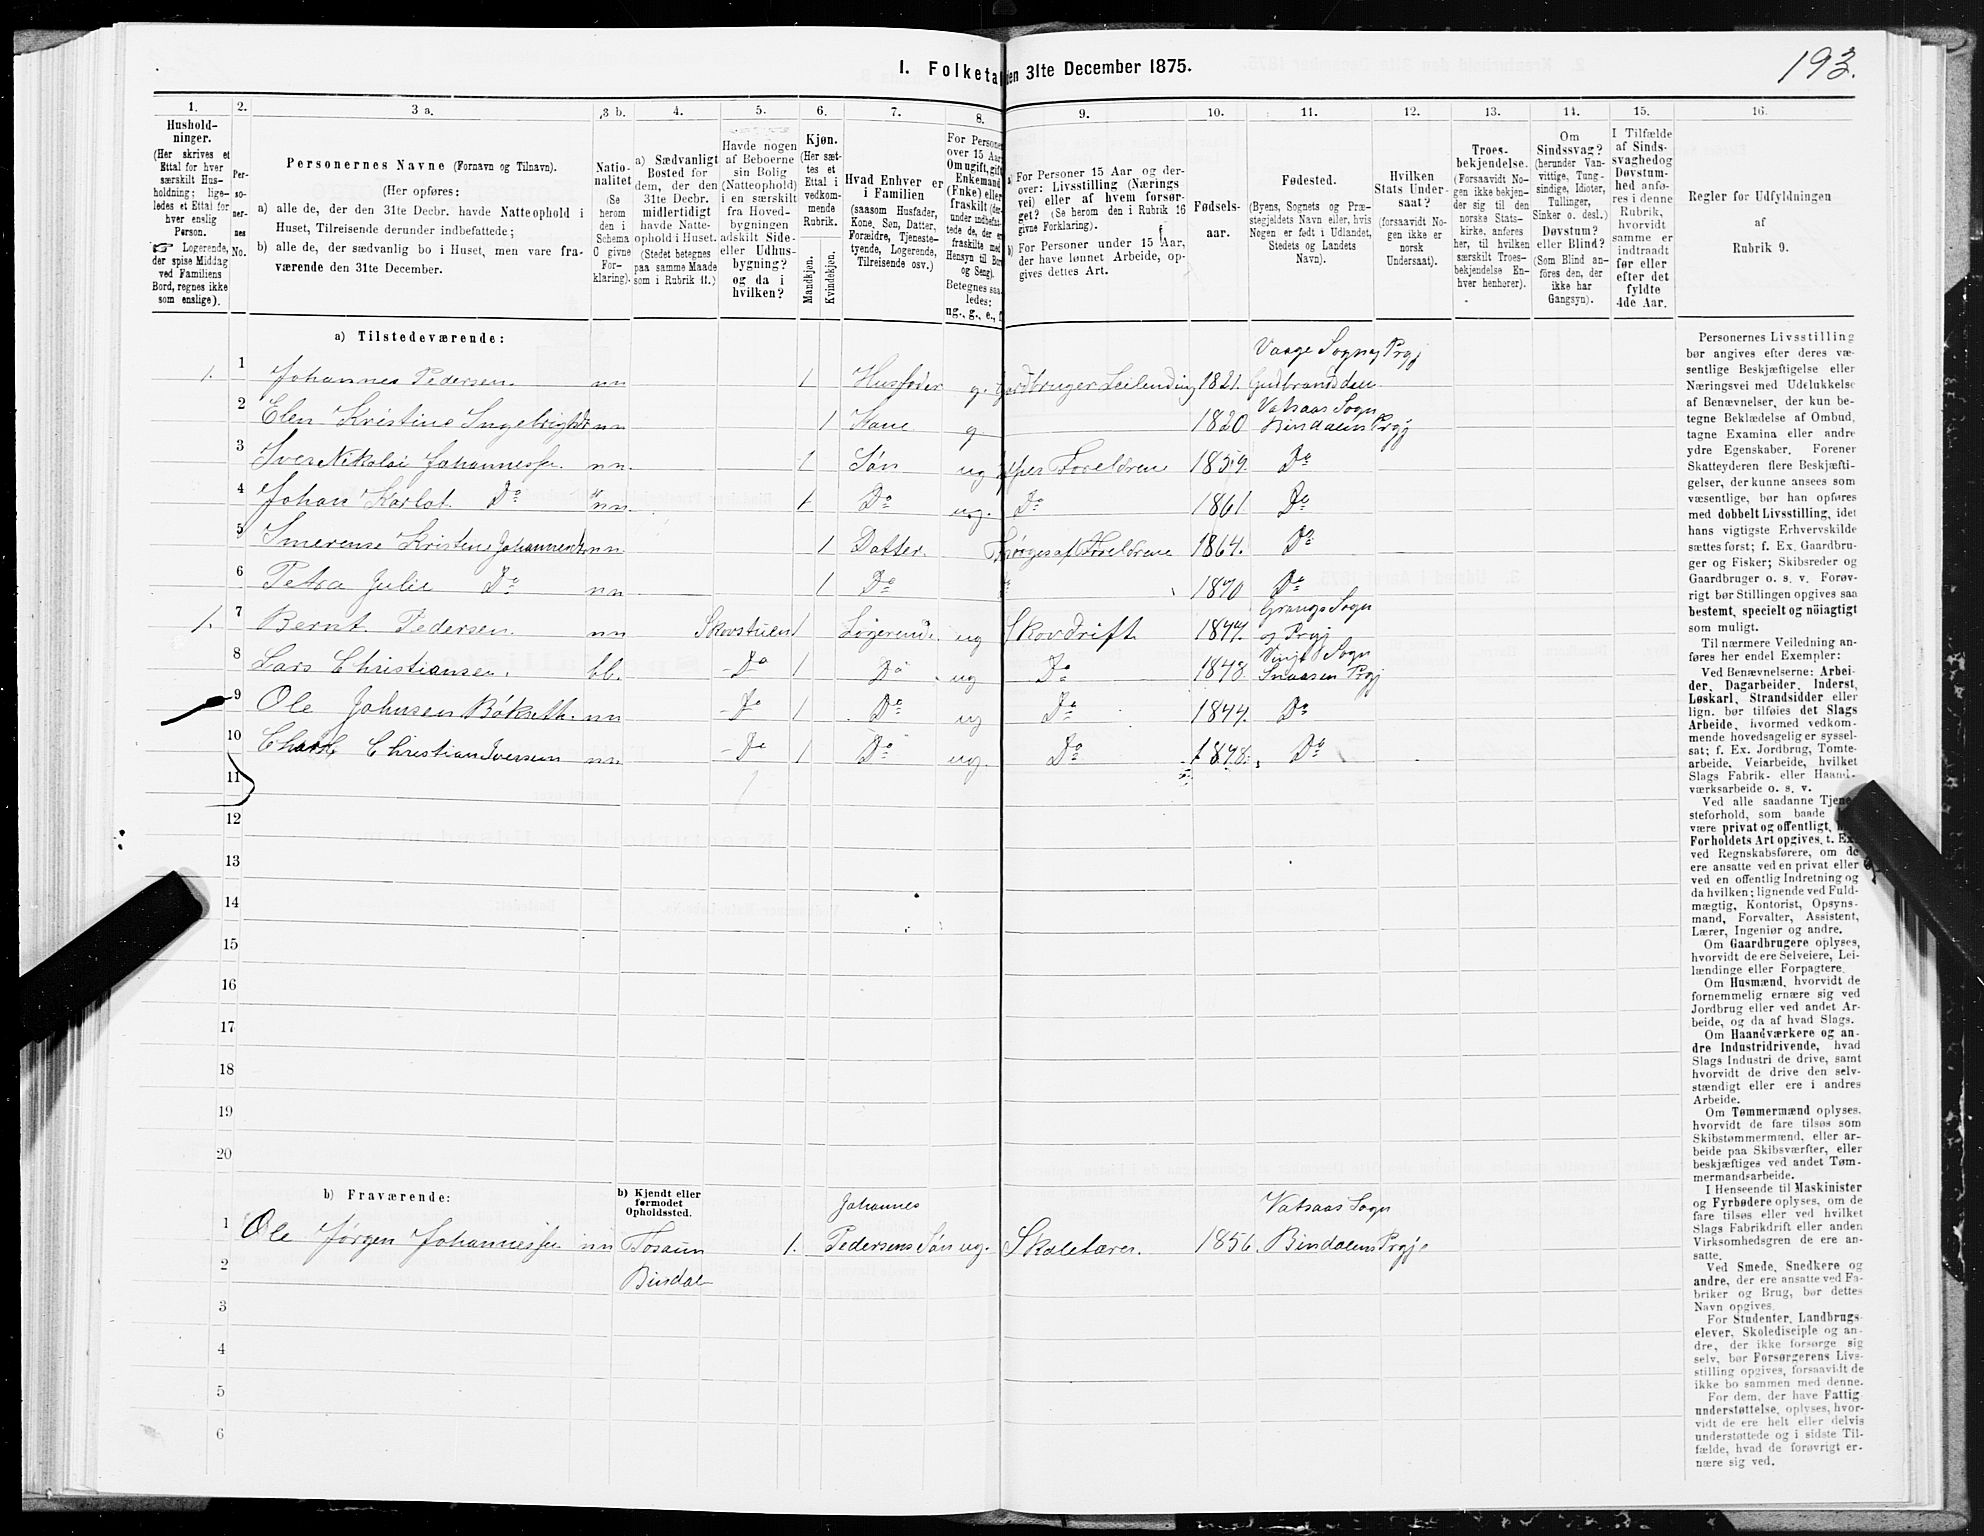 193.
I. Folketal den 31te December 1875.
1. 2. 3 a. 3 b. 4. 5. 6. 7. 8. 9. 10. 11. 12. 13. 14. 15. 16.
Hushold-
ninger.
(Her skrives et
Ettal for hver
særskilt Hus-
holdning; lige-
ledes et Ettal for
hver enslig
Person.
☞ Logerende,
der spise Middag
ved Familiens
Bord, regnes ikke
som enslige).
Per-
so-
ner-
nes
No.
Personernes Navne (Fornavn og Tilnavn).
(Her opføres:
a) alle de, der den 31te Decbr. havde Natteophold i
Huset, Tilreisende derunder indbefattede;
b) alle de, der sædvanlig bo i Huset, men vare fra-
værende den 31te December.
Natio-
nalitet
(Se
herom
den i
Schema
O givne
For-
klaring).
a) Sædvanligt
Bosted for
dem, der den
31te Decbr.
midlertidigt
havde Natte-
ophold i Huset.
(Stedet betegnes
paa samme Maade
som i Rubrik 11.)
Havde nogen
af Beboerne
sin Bolig
(Natteophold)
i en særskilt
fra Hoved-
bygningen
adskilt Side-
eller Udhus-
bygning?
og da i
hvilken?
Kjøn.
(Her sæt-
tes et
Ettal i
vedkom-
mende
Rubrik.
Mandkjøn.
Kvindekjøn.
Hvad Enhver er
i Familien
(saasom Husfader,
Kone, Søn, Datter,
Forældre, Tjeneste-
tyende, Logerende,
Tilreisende osv.)
For Personer
over 15 Aar:
Om ugift, gift,
Enkemand
(Enke) eller
fraskilt
under indbefat-
tede de, der ere
fraskilte med
Hensyn til Bord
og Seng).
Betegnes saa-
ledes:
ug., g., e., f.
a) For Personer 15 Aar og der-
over: Livsstilling (Nærings
vei) eller af hvem forsør-
get? (Se herom den i Rubrik 16
givne Forklaring).
b) For Personer under 15 Aar,
der have lønnet Arbeide, op-
gives dettes Art.
Fødsels-
aar.
Fødested.
(Byens, Sognets og Præ-
stegjeldets Navn eller, hvis
Nogen er født i Udlandet,
Stedets og Landets
Navn).
Hvilken
Stats Under-
saat?
(forsaavidt No-
gen ikke er
norsk
Undersaat).
Troes-
bekjendelse.
(Forsaavidt No-
gen ikke bekjen-
der sig til den
norske Stats-
kirke, anføres
her, til hvilken
særskilt Troes-
bekjendelse En-
hver henhører).
Om
Sindssvag?
(herunder Van-
vittige, Tung-
sindige, Idioter,
Tullinger,
Sinker o. desl.)
Døvstum?
eller Blind?
(Som Blind an-
føres den, der
ikke har
Gangsyn).
I Tilfælde
af Sinds-
svaghed og
Døvstum-
hed anfø-
res i denne
Rubrik,
hvorvidt
samme er
indtraadt
før eller
efter det
fyldte
4de Aar.
Regler for Udfyldningen
af
Rubrik 9.
a) Tilstedeværende:
Vaage Sogn og Prgj
1. 1 Johannes Pedersen nn 1 Husfader g. Gardbruger Leilending 1821. Gudbrandsdalen
Vatsaas Sogn
2 Elen Kristine Ingebrigtsdt nn 1 Kone g 1820 Bindalens Prgj
3 Iver Nikolai Johannessen nn. 1 Søn ug hjelper Foreldrene 1859. Do
4 Johan Karlot Do nn. 1 Do ug. Do 1861 Do
5 Imerense Kristine Johannesdt nn 1 Datter. Forsørges af Foreldrene 1864. Do
6 Petra Julie Do nn 1 Do " 1870 Do
Grongs Sogn
1. 7 Bernt Pedersen nn Skovstuen 1 Logerende ug Skovdrift 1847. og Prgj
8 Lars Christiansen. bl. Do 1 Do ug Do 1848. Snaasen Prgj
9 Ole Johnsen Bøkseth nn Do 1 Do ug Do 1844. Do
10 Christian Iversen nn Do 1 Do ug. Do 1848. Do
11
12
13
14
15
16
17
18
19
20
b) Fraværende:
b) Kjendt eller
formodet
Opholdssted.
Johannes Vatsaas Sogn
1 Ole Jørgen Johannessen nn Tosaun 1. Pedersens Søn ug. Skolelærer. 1856. Bindalens Prgj.
2 Bindal
3
4
5
6
Personernes Livsstilling
bør angives efter deres væ-
sentlige Beskjæftigelse eller
Næringsvei med Udelukkelse
af Benævnelser, der kun be-
tegne Beklædelse af Ombud,
tagne Examina eller andre
ydre Egenskaber. Forener
Skatteyderen flere Beskjæfti-
gelser, der kunne ansees som
væsentlige, bør han opføres
med dobbelt Livsstilling, idet
hans vigtigste Erhvervskilde
sættes først; f. Ex. Gaardbru-
ger og Fisker; Skibsreder og
Gaardbruger o. s. v. Forøv-
rigt bør Stillingen opgives saa
bestemt, specielt og nøiagtigt
som muligt.
Til nærmere Veiledning an-
føres her endel Exempler:
Ved Benævnelserne: Arbei-
der, Dagarbeider, Inderst,
Løskarl, Strandsidder eller
lign. bør tilføies det Slags
Arbeide, hvormed vedkom-
mende hovedsagelig er syssel-
sat; f. Ex. Jordbrug, Tomte-
arbeide, Veiarbeide, hvilket
Slags Fabrik- eller Haand-
værksarbeide o. s. v.
Ved alle saadanne Tjene-
steforhold, som baade
være privat og offentligt,
Forholdets Art opgives, t. Ex.
ved Regnskabsførere, om de
ere ansatte ved en privat eller
ved en offentlig Indretning og
da hvilken; lignende ved Fuld-
mægtig, Kontorist, Opsyns-
mand, Forvalter, Assistent,
Lærer, Ingeniør og andre.
Om Gaardbrugere oplyses,
hvorvidt de ere Selveiere, Lei-
lændinge eller Forpagtere.
Om Husmænd, hvorvidt de
fornemmelig ernære sig ved
Jordbrug eller ved andet Ar-
beide, og da af hvad Slags.
Om Haandværkere og an-
dre Industridrivende, hvad
Slags Industri de drive, samt
hvorvidt de drive den selv-
stændigt eller ere i andres
Arbeide.
Om Tømmermænd oplyses,
hvorvidt de fare tilsøs som
Skibstømmermænd, eller ar-
beide paa Skibsværfter, eller
beskjæftiges ved andet Tøm-
mermandsarbeide.
I Henseende til Maskinister
og Fyrbødere oplyses, om de
fare tilsøs eller ved hvilket
Slags Fabrikdrift eller anden
Virksomhedsgren de ere an-
satte.
Ved Smede, Snedkere og
andre, der ere ansatte ved Fa-
briker og Brug, bør dettes
Navn opgives.
For Studenter, Landbrugs-
elever, Skoledisciple og an-
dre, der ikke forsørge sig
selv, bør Forsørgerens Livs-
stilling opgives, forsaavidt de
ikke bo sammen med denne.
For dem, der have Fattig-
understøttelse, oplyses, hvor-
vidt de ere helt eller delvis
understøttede og i sidste Til-
fælde, hvad de forøvrigt er-
nære sig ved.